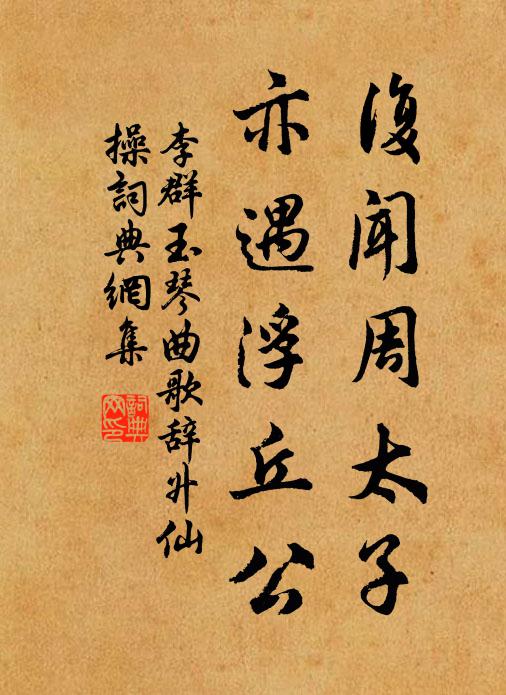 復聞周太子
亦遇浮丘公
李群玉琴曲歌辞升仙
操詞典網集
詞典
网印